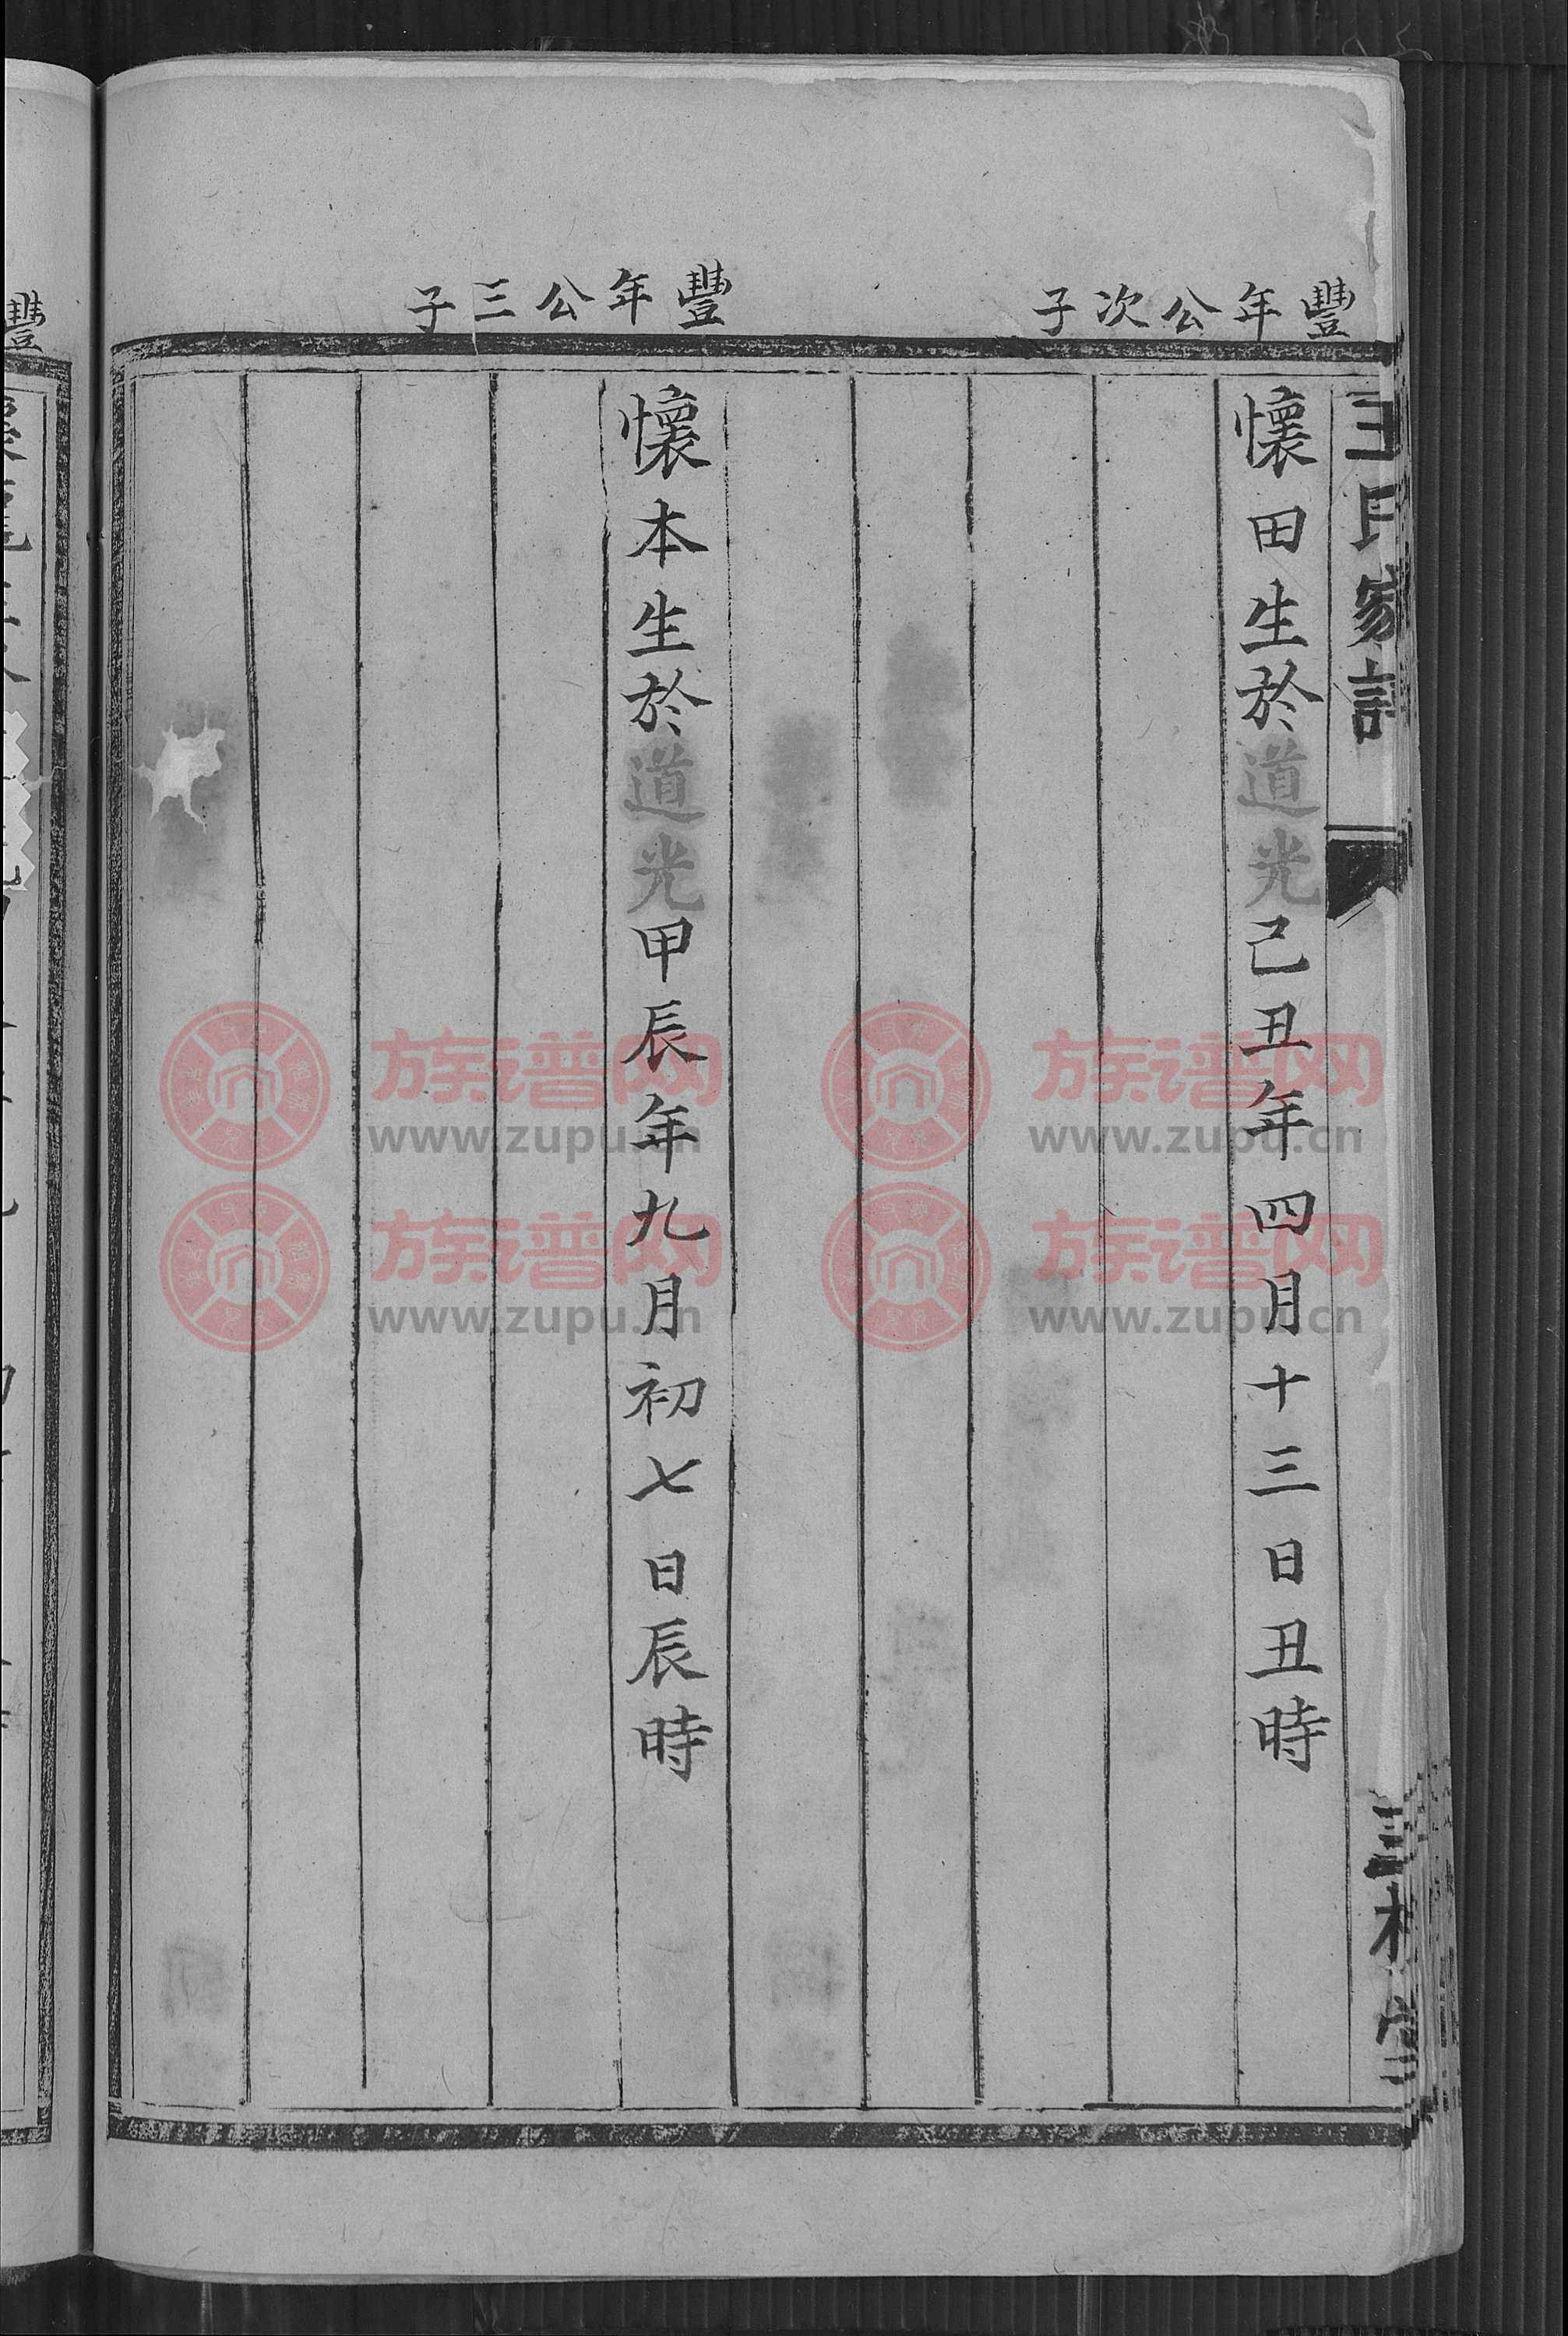 王氏家譜
三槐堂
豐年公次子
懷田生於道光己丑年四月十三日丑時
豐年公三子
懷本生於道光甲辰年九月初七日辰時
豐
族谱网
www.zupu.cn
族谱网
www.zupu.cn
族谱网
www.zupu.cn
族谱网
www.zupu.cn